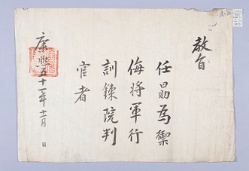 敎旨
任勗爲禦
侮將軍行
訓鍊院判
官者
康熙五十一年十二月　日